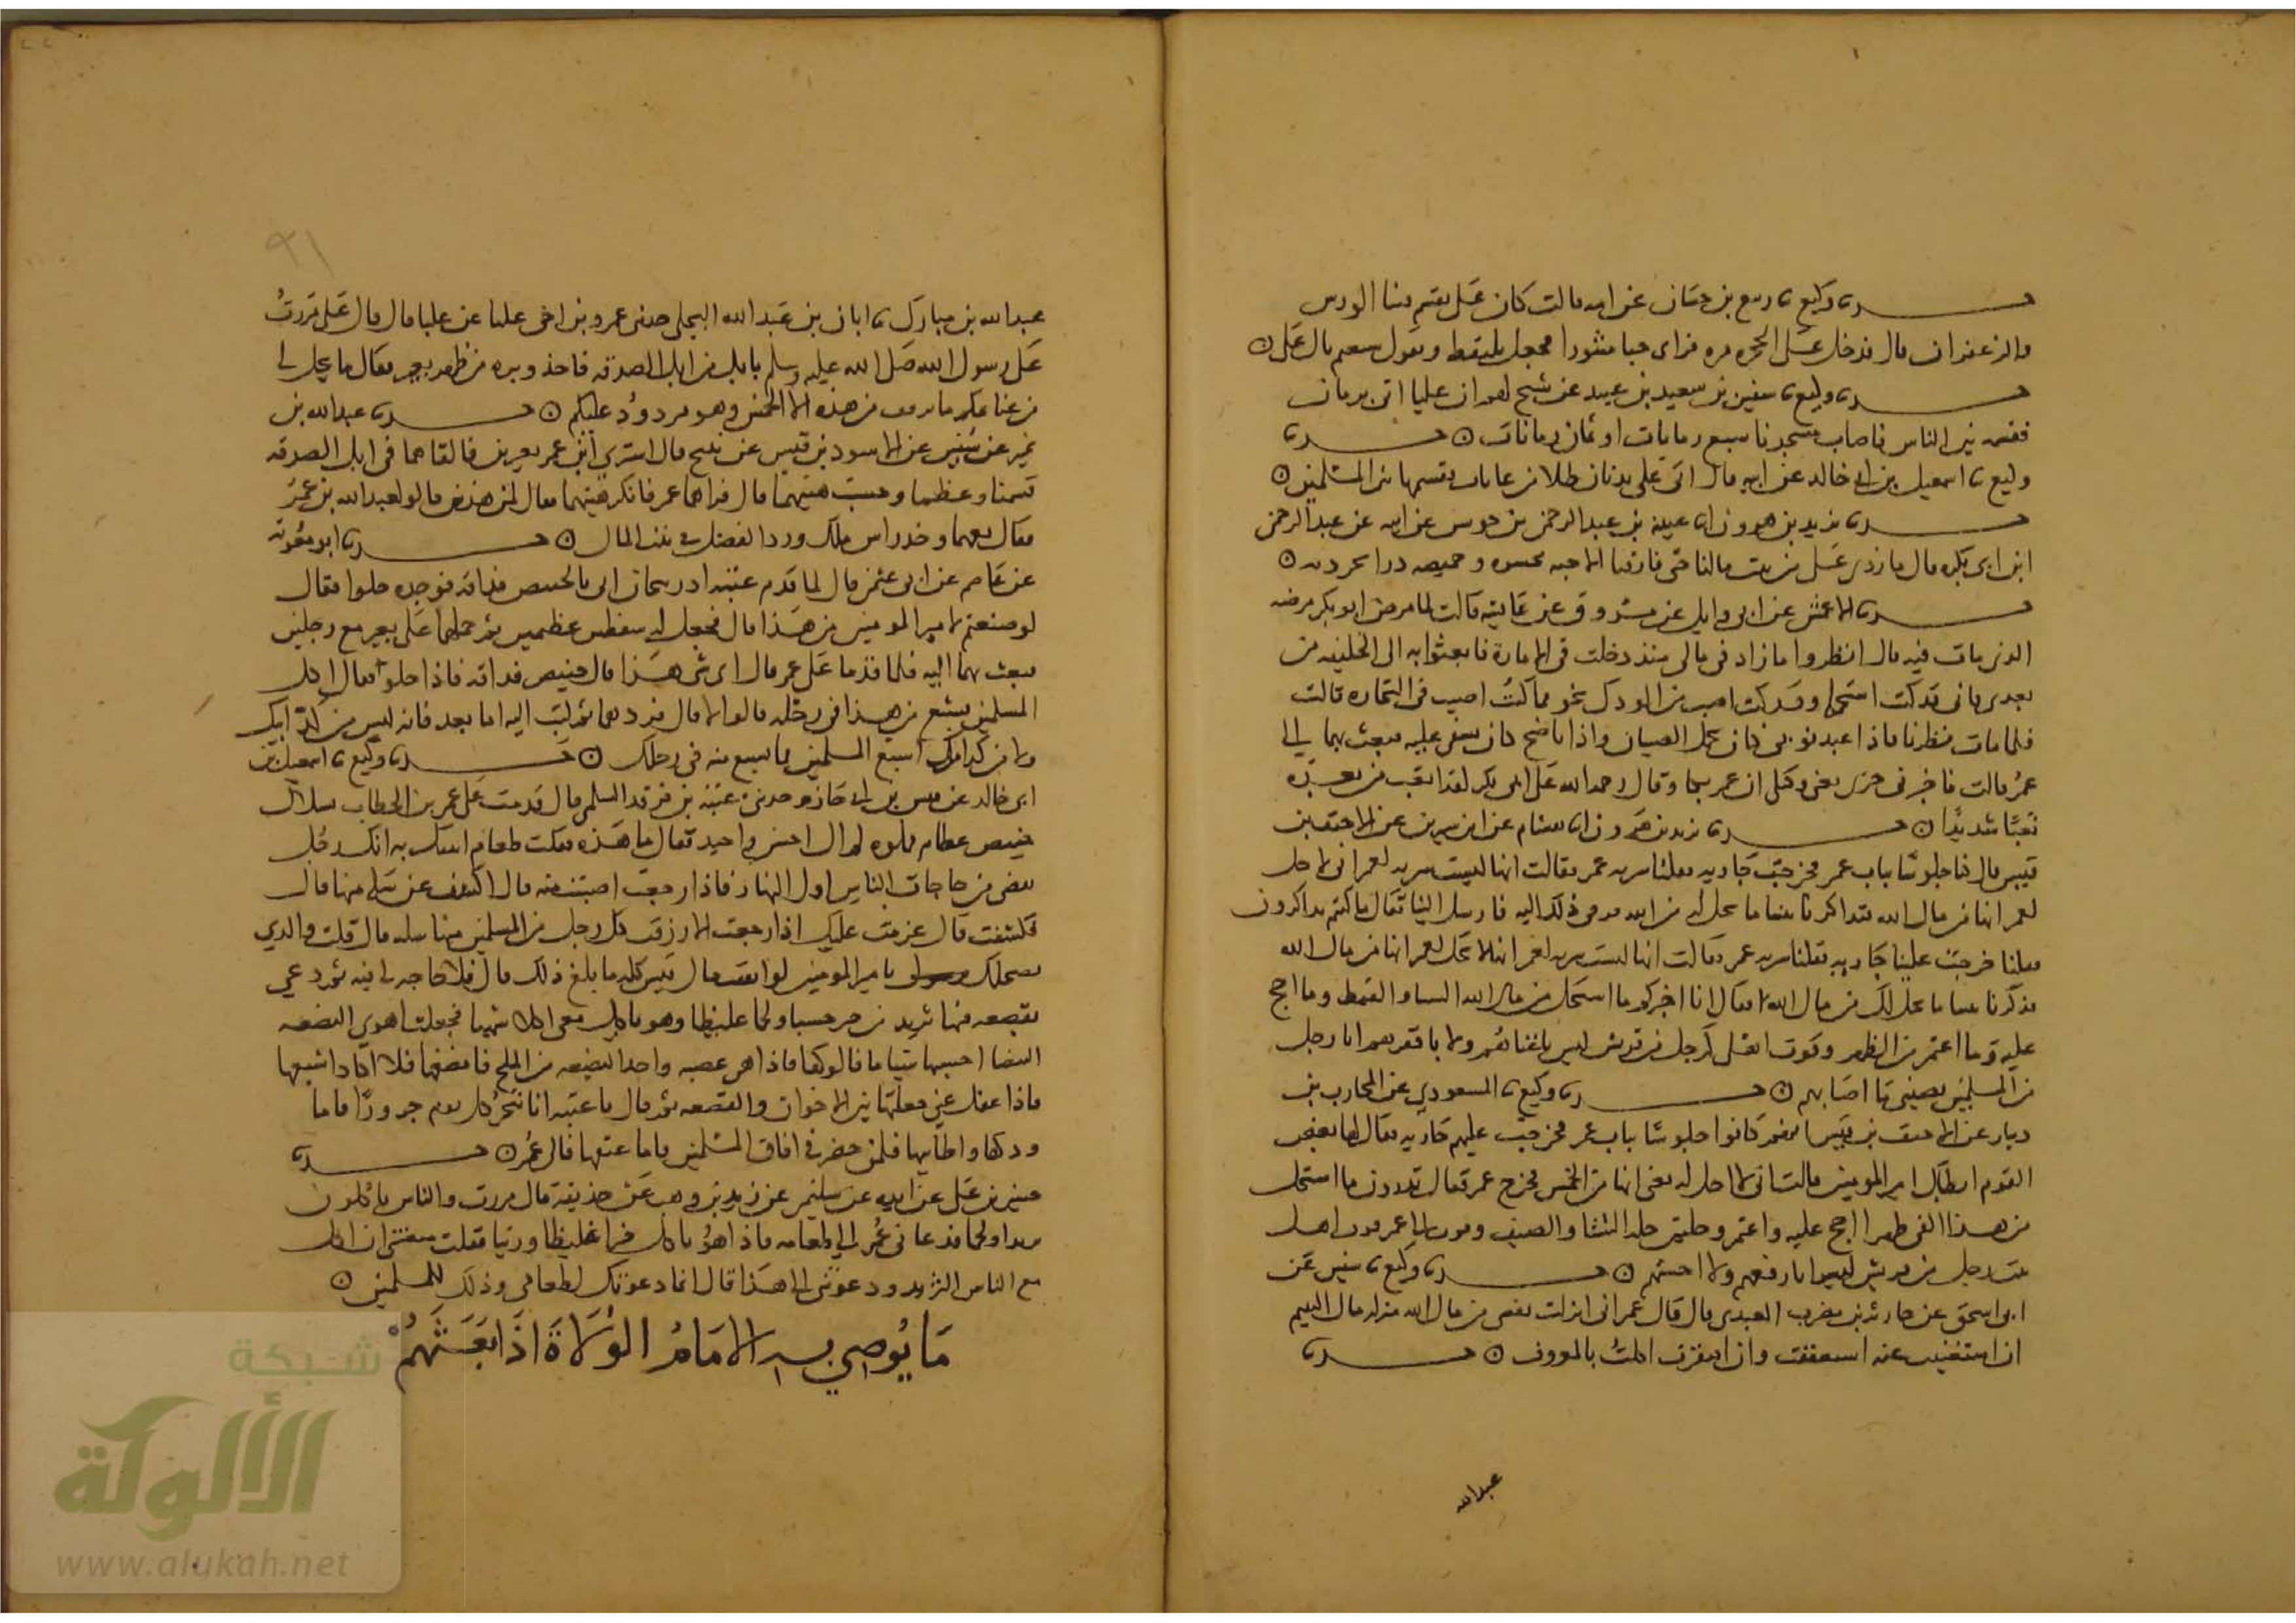 حدثنا وكيع ثنا ربيع بن حسان عن امه قالت كان علي يقسم فينا الورس
والزعفران قال فدخل علي الحجره مره فراى حبا منثورا فجعل يلتقط ويقول شبعتم يال علي
حدثنا وكيع ثنا سفين بن سعيد بن عبيد عن شيخ لهم ان عليا اتى برمان
فقسمه بين الناس فاصاب مسجدنا سبع رمانات او ثمان رمانات حدثنا
وكيع ثنا اسمعيل بن ابي خالد عن ابيه قال اتى علي بدنان طلا من عانات فقسمها بين المسلمين
حدثنا يزيد بن هرون انا عيينة بن عبد الرحمن بن جوشن عن ابيه عن عبد الرحمن
ابن ابي بكره قال ما رزي علي من بيت مالنا حتى فارقنا الا جبه محشوه وخميصه درابجرديه
حدثنا الاعمش عن ابي وايل عن مسروق عن عايشه قالت لما مرض ابو بكر مرضه
الذي مات فيه قال انظروا ما زاد في مالي منذ دخلت في الاماره فابعثوا به الى الخليفه من
بعدي فاني قد كنت استحله وقد كنت اصيب من الودك نحو مما كنت اصيب في التجاره قالت
فلما مات نظرنا فاذا عبد نوبي كان يحمل الصبيان واذا ناضح كان يسقي عليه فبعث بهما الى
عمر قالت فاخبرني جري يعني وكيلي ان عمر بكا وقال رحمه الله على ابي بكر لقد اتعب من بعده
تعبا شديدا حدثنا يزيد بن هرون انا هشام عن ابن سيرين عن الاحنف بن
قيس قال كنا جلوسا بباب عمر فخرجت جاريه فقلنا سريه عمر فقالت انها ليست سريه لعمر اني لا احل
لعمر اني من مال الله فتذاكرنا بيننا ما يحل له من مال الله فرقى ذلك اليه فارسل الينا فقال ما كنتم تذاكرون
فقلنا خرجت علينا جاريه فقلنا سريه عمر فقالت انها ليست سريه لعمر انها لا تحل لعمر انها من مال الله
فذكرنا بيننا ما يحل لك من مال الله فقال انا اخبركم بما استحل من مال الله الشتا والقيظ وما احج
عليه وما اعتمر من الظهر وقوت اهلي كرجل من قريش ليس باغناهم ولا بافقرهم انا رجل
من المسلمين يصيبني ما اصابهم حدثنا وكيع ثنا المسعودي عن محارب بن
دثار عن الاحنف بن قيس انهم كانوا جلوسا بباب عمر فخرجت عليهم جاريه فقال لها بعض
القوم ايطاك امير المومنين قالت اني لا احل له يعني انها من الخمس فخرج عمر فقال تدرون ما استحل
من هذا الفي ظهرا احج عليه واعتمر وحلتين حله الشتا والصيف وقوت ال عمر قوت اهل
بيت رجل من قريش ليس بارفعهم ولا اخسهم حدثنا وكيع ثنا سفين عن
ابي اسحق عن حارثه بن مضرب العبدي قال قال عمر اني انزلت نفسي من مال الله منزله مال اليتيم
ان استغنيت عنه استعففت وان افتقرت اكلت بالمعروف حدثنا
عبدالله
٩١
عبدالله بن مبارك ثنا ابان بن عبد الله البجلي حدثني عمرو بن اخي عليا عن عليا قال قال علي مررت
على رسول الله صلى الله عليه وسلم بابل من ابل الصدقه فاخذ وبره من ظهر بعير فقال ما يحل لي
من غنايمكم ما يزن من هذه الا الخمس وهو مردود عليكم حدثنا عبد الله بن
نمير عن سفين عن الاسود بن قيس عن نبيح قال اشترى ابن عمر بعيرين فالقاهما في ابل الصدقه
فسمنا وعظما وحسنت هيئتهما قال فراهما عمر فانكر هيئتهما فقال لمن هذين قالوا لعبد الله بن عمر
فقال بعهما وخذ راس مالك ورد الفضل في بيت المال حدثنا ابو معويه
عن عاصم عن ابي عثمن قال لما قدم عتبه اذربيجان اتي بالخبيص فذاقه فوجده حلوا فقال
لو صنعتم لامير المومنين من هذا قال فجعل له سفطين عظيمين ثم حملهما على بعير مع رجلين
فبعث بهما اليه فلما قدما على عمر قال اي شي هذا قال خبيص فذاقه فاذا حلو فقال اكل
المسلمين يشبع من هذا في رحله قالوا لا قال فردهما ثم كتب اليه اما بعد فانه ليس من كد ابيك
ولا من كد امك اشبع المسلمين مما تشبع منه في رحلك حدثنا وكيع ثنا اسمعيل بن
ابي خالد عن قيس بن ابي حازم حدثني عتبه بن فرقد السلمي قال قدمت على عمر بن الخطاب بسلال
خبيص عظام مملوه لم ار احسن واجيد فقال ما هذه فقلت طعام اتيتك به انك رجل
تقضي من حاجات الناس اول النهار فاذا رجعت اصبت منه قال اكشف عن سله منها قال
فكشفت قال عزمت عليك اذا رجعت الا رزقت كل رجل من المسلمين منها سله قال قلت والذي
يصلحك يامير المومنين لو انفقت مال قيس كله ما بلغ ذلك قال فلا حاجه لي فيه ثم دعى
بقصعه فيها ثريد من خبز خشنا ولحما غليظا وهو ياكل معي اكلا شهيا فجعلت اهوي البضعه
البيضا احسبها سناما فالوكها فاذا هي عصبه واخذ البضعه من اللحم فامضغها فلا اكاد اسيغها
فاذا غفل عني جعلتها بين الخوان والقصعه ثم قال يا عتبه انا ننحر كل يوم جزورا فاما
ودكها واطايبها فلمن حضر في افاق المسلمين واما عنقها فال عمر حدثنا
حسين بن علي عن زايده عن سليمن عن زيد بن وهب عن حذيفة قال مررت والناس ياكلون
ثريدا ولحما فدعاني عمر الى طعامه فاذا هو ياكل خبزا غليظا وزيتا فقلت منعتني ان اكل
مع الناس الثريد ودعوتني الى هذا قال انما دعوتك لطعامي وذلك للمسلمين
مَا يُوصي به الامَامُ الوُلَاةَ اذَا بَعَثَهُمْ
شبكة
الألوكة
www.alukah.net